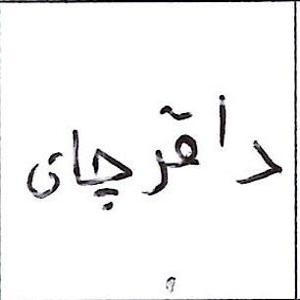 داقرچای